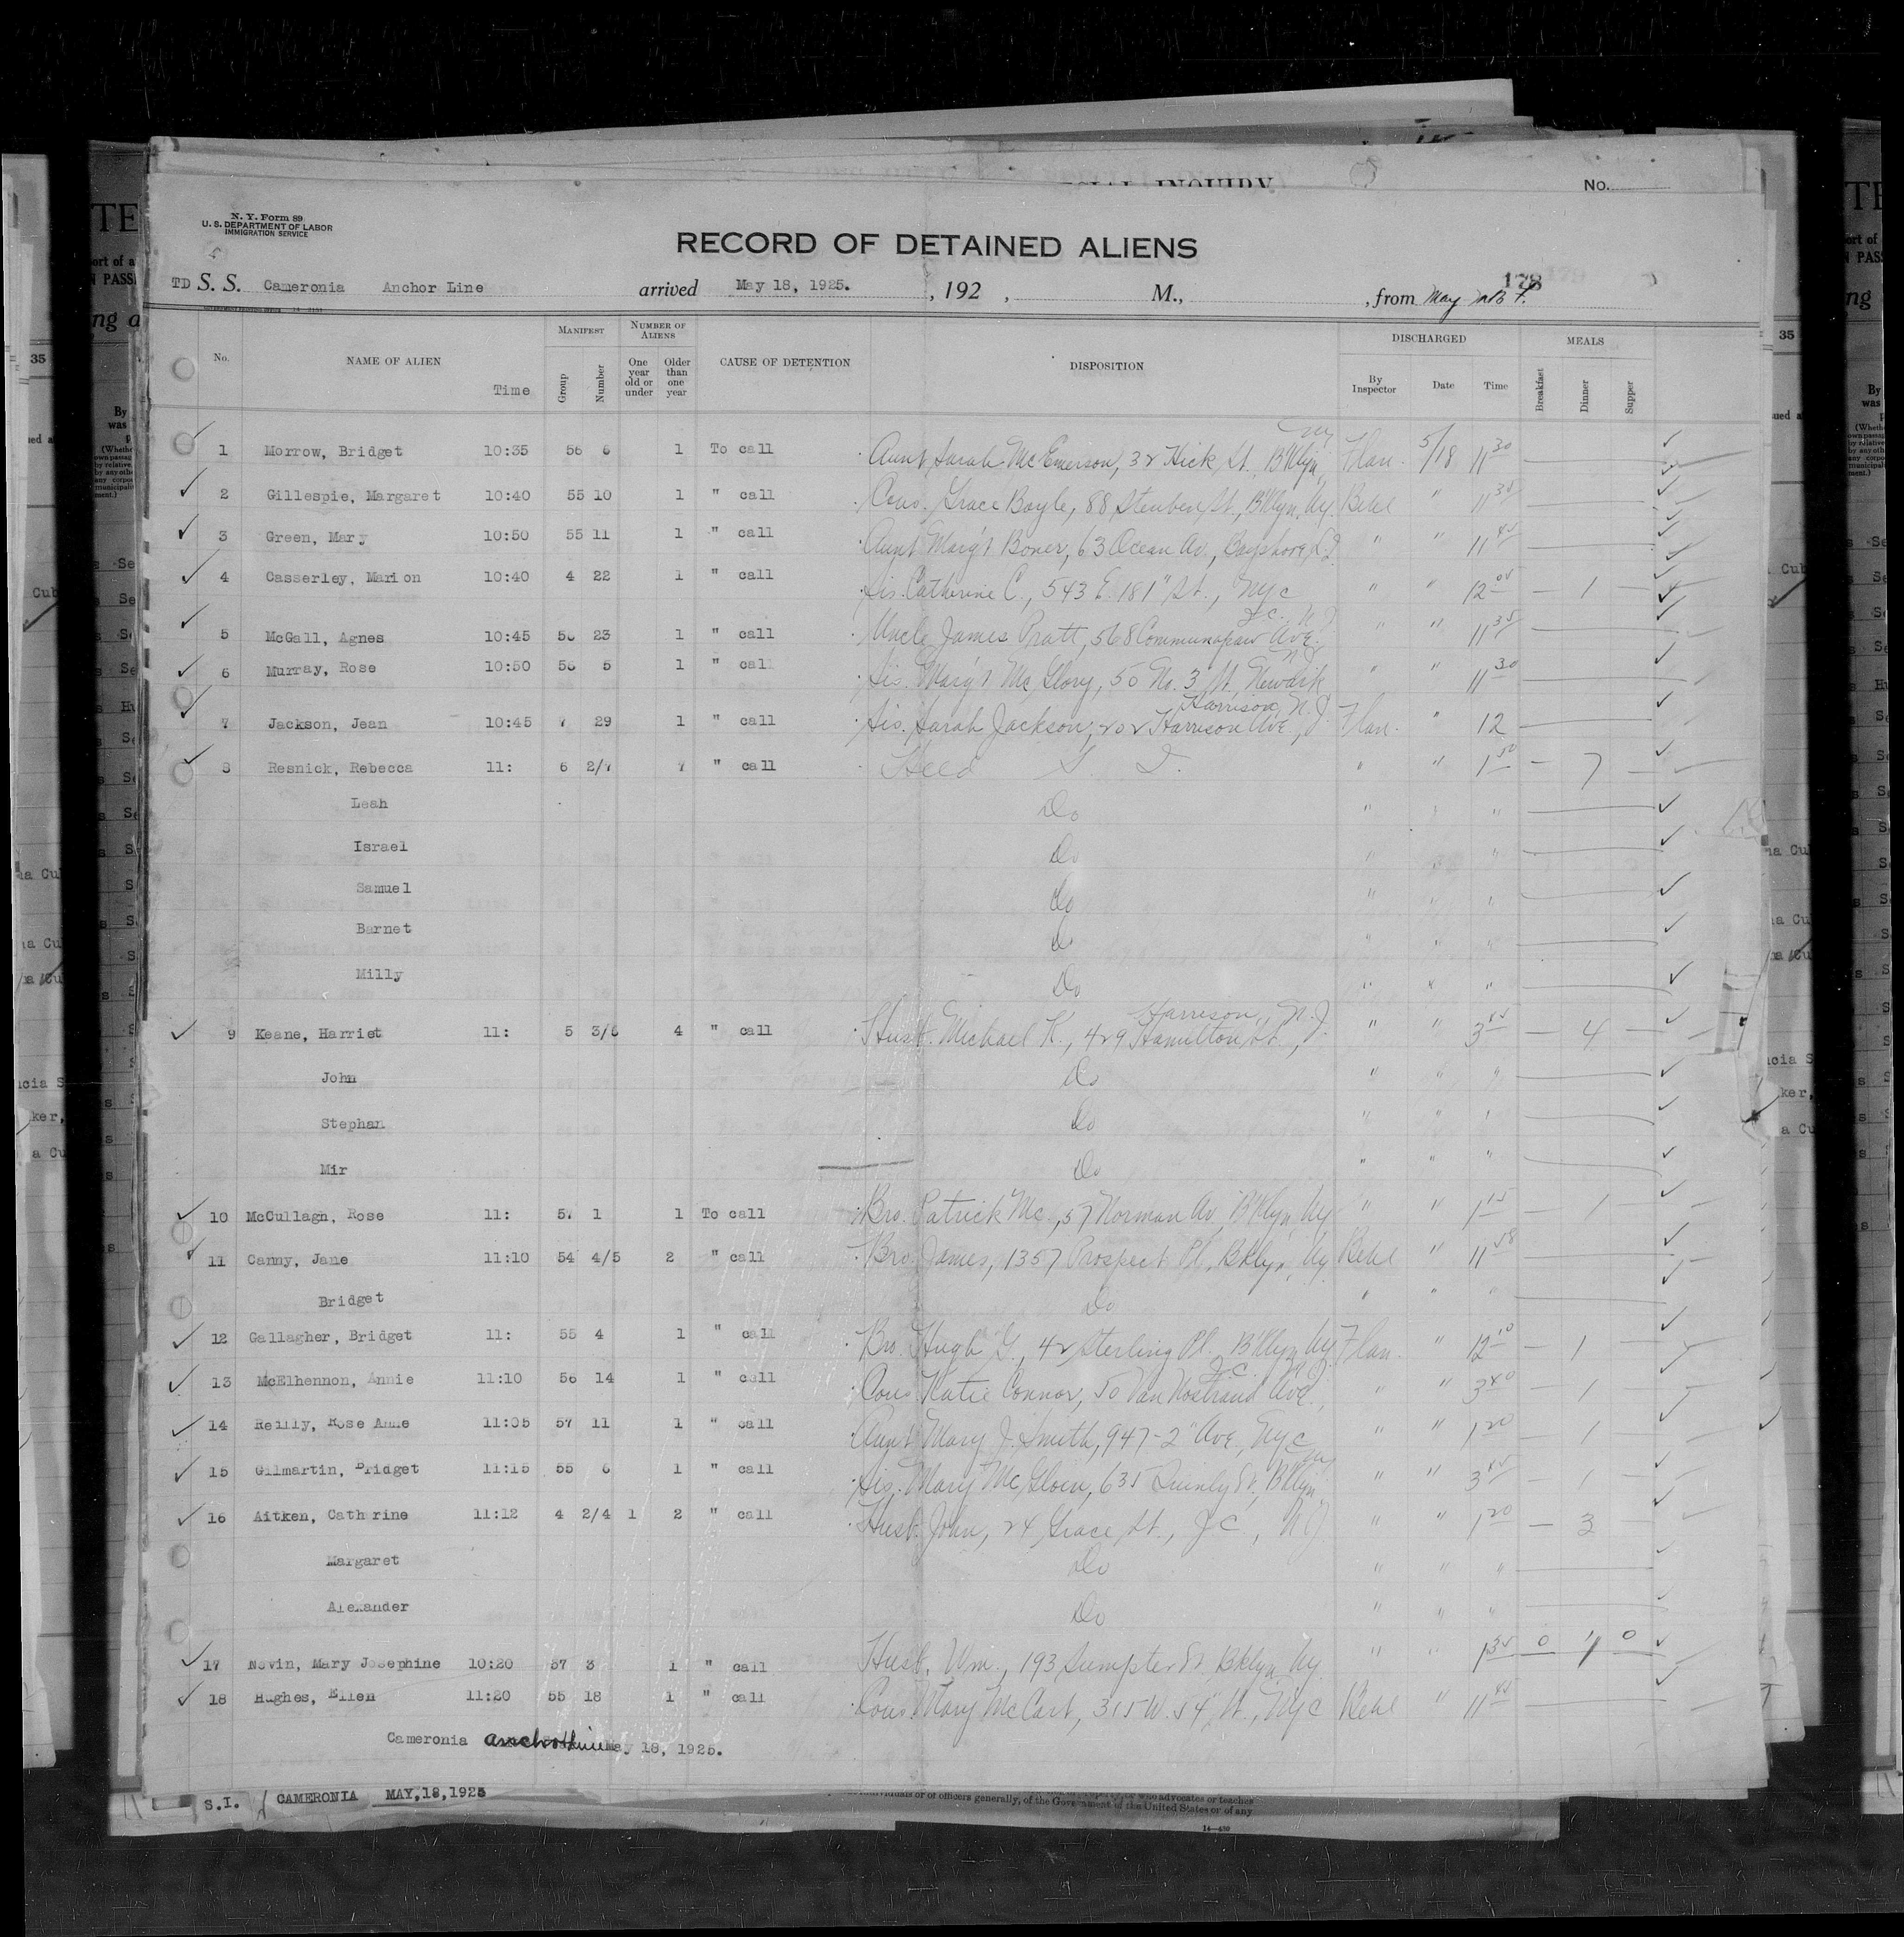 No.
N. Y. Form 89
U. S. DEPARTMENT OF LABOR
IMMIGRATION SERVICE
RECORD OF DETAINED ALIENS
178
TD S. S. Cameronia Anchor Line arrived May 18, 1925. , 192 , M., , from May
No. NAME OF ALIEN Time MANIFEST Group Number NUMBER OF ALIENS One year old or under Older than one year CAUSE OF DETENTION DISPOSITION DISCHARGED By Inspector Date Time MEALS Breakfast Dinner Supper
1 Morrow, Bridget 10:35 56 6 1 To call Aunt Sarah McEmerson, 32 Hick St. B'klyn, NY Flan. 5/18 11 30
2 Gillespie, Margaret 10:40 55 10 1 " call Cous. Grace Boyle, 88 Steuben St., B'klyn, Ny. Behl " 11 35
3 Green, Mary 10:50 55 11 1 " call Aunt Marg't Boner, 63 Ocean Av., Bayshore, L.I. " " 11 45
4 Casserley, Marion 10:40 4 22 1 " call Sis. Catherine C., 543 E. 181" St., Nyc " " 12 1
5 McGall, Agnes 10:45 56 23 1 " call Uncle James Pratt, 568 Communapaw Ave. J.C., N.J. " " 11 35
6 Murray, Rose 10:50 56 5 1 " call Sis. Marg't McGlory, 50 No. 3 St. Newark N.J. " " 11 30
7 Jackson, Jean 10:45 7 29 1 " call Sis. Sarah Jackson, 202 Harrison Ave, Harrison, N.J. Flan. " 12
8 Resnick, Rebecca 11: 6 2/7 7 " call Held S. I. " " 1 50 7
Leah Do " " "
Israel Do " " "
Samuel Do " " "
Barnet Do " " "
Milly Do " " "
9 Keane, Harriet 11: 5 3/6 4 " call Husb. Michael K., 429 Hamilton St., Harrison, N.J. " " 3 45 4
John Do " " "
Stephan Do " " "
Mir Do " " "
10 McCullagh, Rose 11: 5. 1 1 To call Bro. Patrick Mc., 57 Norman Av, B'klyn, Ny " " 1 15 1
11 Canny, Jane 11:10 54 4/5 2 " call Bro. James, 1357 Prospect Pl., Bklyn, Ny. Behl " 11 58
Bridget Do " " "
12 Gallagher, Bridget 11: 55 4 1 " call Bro. Hugh G., 42 Sterling Pl. B'klyn, Ny Flan. " 12 10 1
13 McElhennon, Annie 11:10 56 14 1 " call Cous. Katie Connor, 50 Van Nostrand Ave., J.C. N.J. " " 3 40 1
14 Reilly, Rose Anne 11:05 57 11 1 " call Aunt Mary J. Smith, 947-2" Ave, Nyc " " 1 20 1
15 Gilmartin, Bridget 11:15 55 6 1 " call Sis. Mary McGloin, 635 St., B'klyn NY " " 3 45 1
16 Aitken, Cath rine 11:12 4 2/4 1 2 " call Husb. John, 24 Grace St., J.C., N.J. " " 1 20 3
Margaret Do " " "
Alexander Do " " "
17 Nevin, Mary Josephine 10:20 57 3 1 " call Husb. Wm., 193 Sumpter St, Bklyn, Ny " " 1 35 0 1 0
18 Hughes, Ellen 11:20 55 18 1 " call Cous. Mary McCart, 315 W. 54" St., Nyc Behl " 11 45
Cameronia anchor line May 18, 1925.
S.I. CAMERONIA MAY,18,1925
individuals or of officers generally, of the Government of the United States or of any